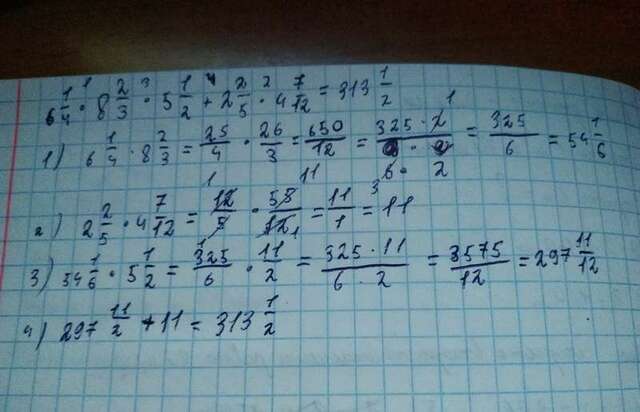 6 1/4 ·¹ 8 2/3 ·³ 5 1/2 +⁴ 2 2/5 ·² 4 7/12 = 313 1/2
1) 6 1/4 · 8 2/3 = 25/4 · 26/3 = 650/12 = 325 · 2/6 · 2 = 325/6 = 54 1/6
2) 2 2/5 · 4 7/12 = 12/5 · 55/12 = 11/1 = 11
3) 54 1/6 · 5 1/2 = 325/6 · 11/2 = 325 · 11/6 · 2 = 3575/12 = 297 11/12
4) 297 11/2 + 11 = 313 1/2